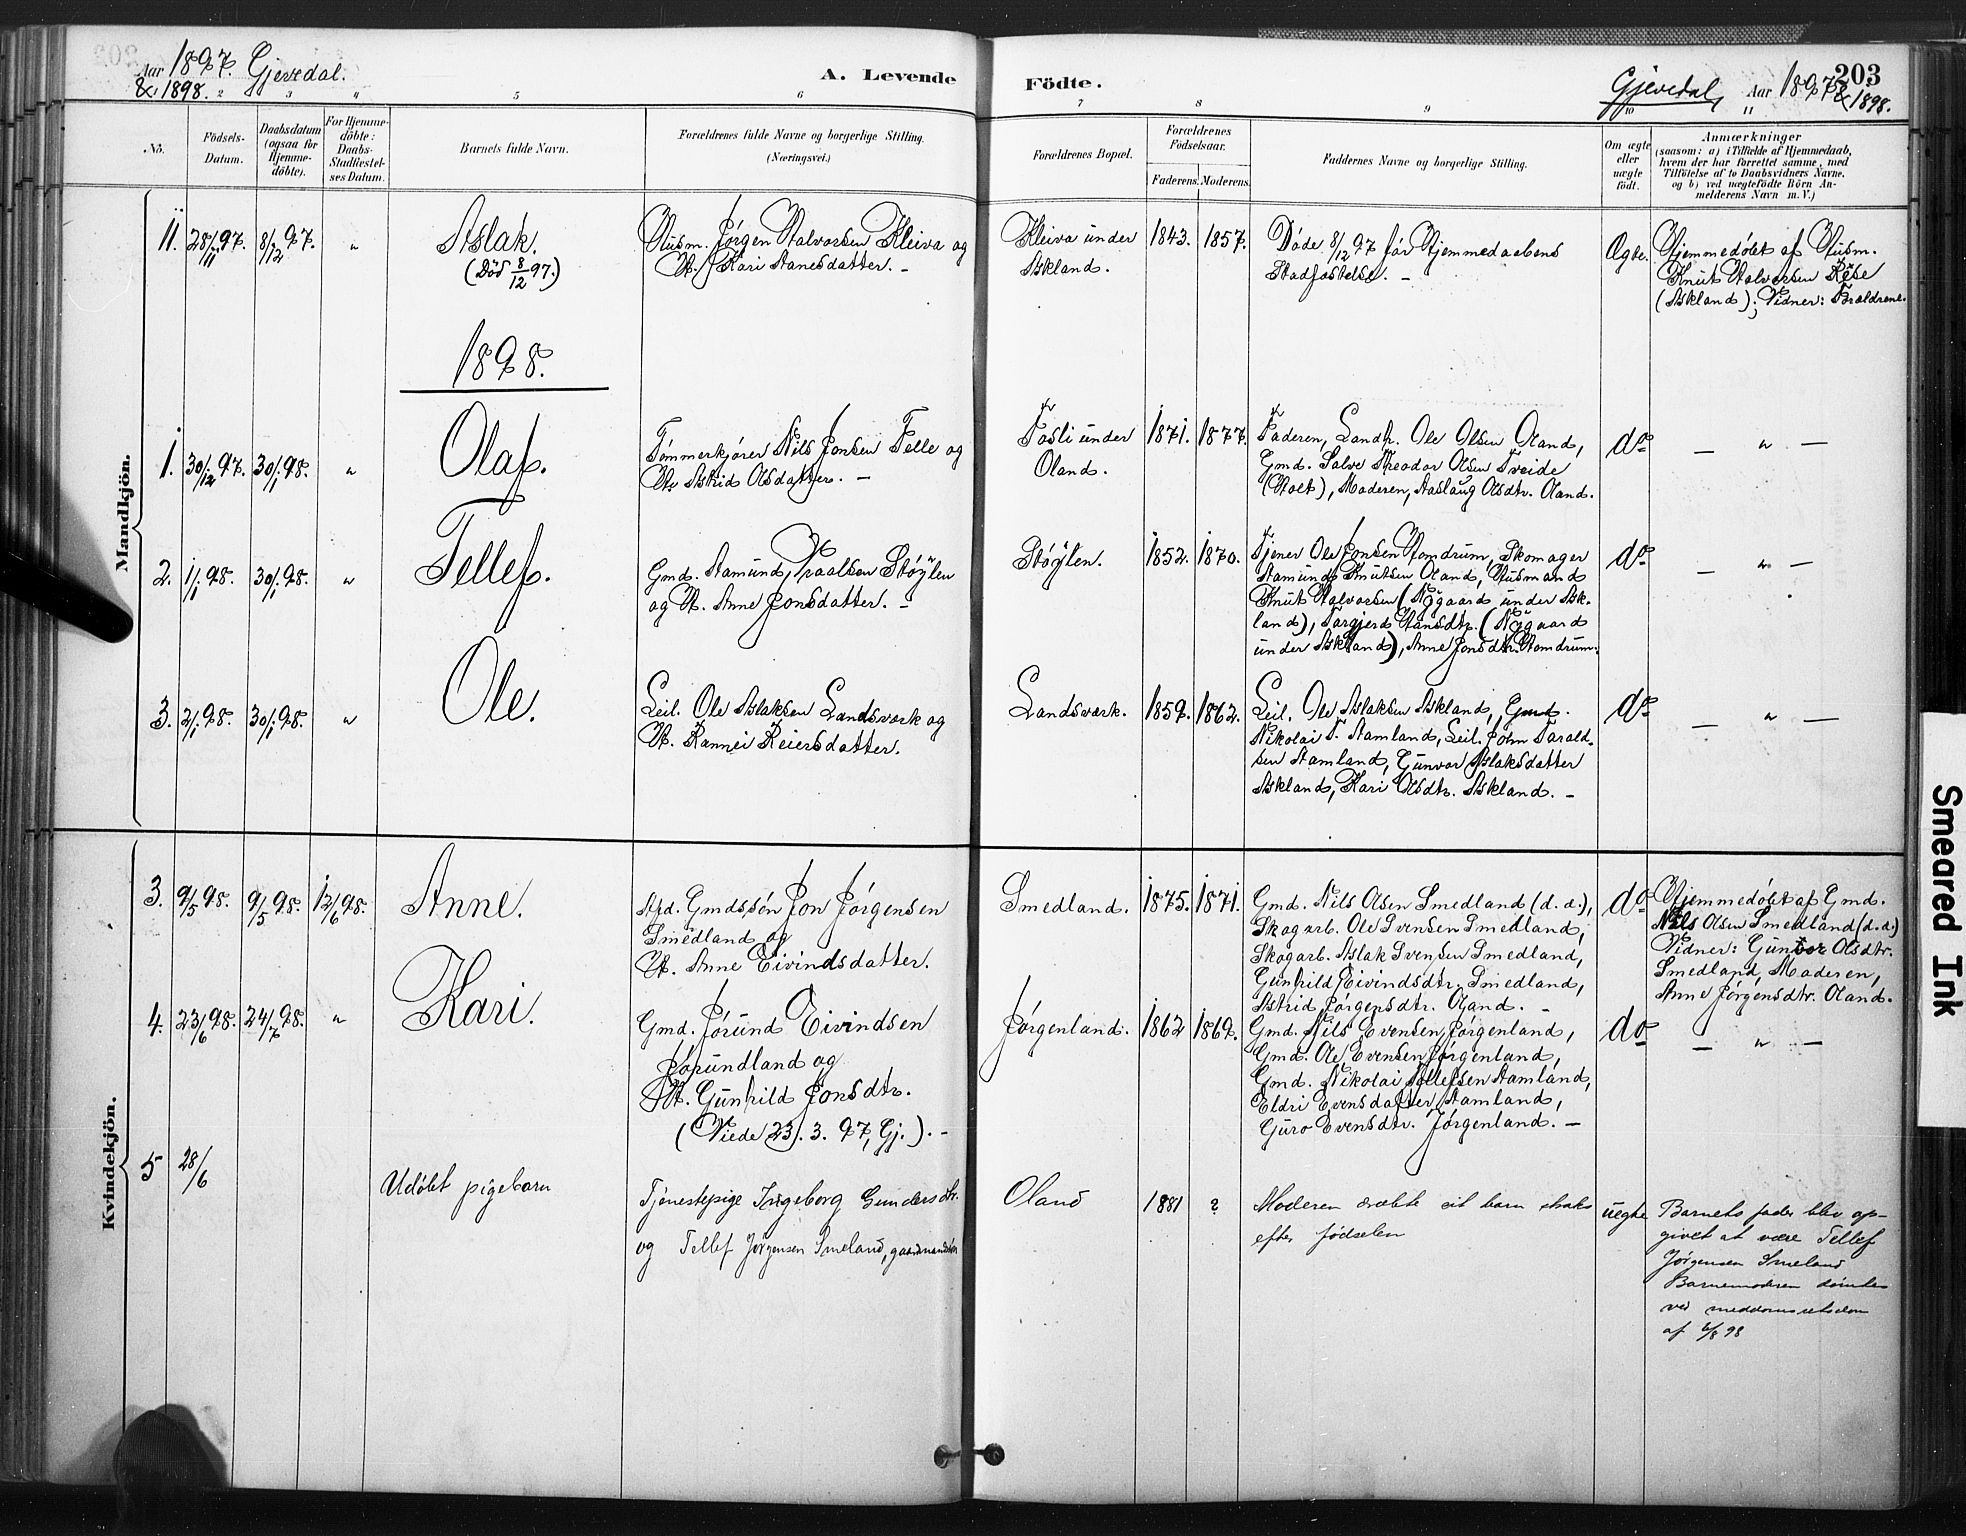 Aar 1897. Gjevedal.
& 1898.
A. Levende
Födte.
Gjevedal, Aar 1897 & 1898.
203
2 3 4 5 6 7 8 9 10 11
No.
Födsels-
Datum.
Daabsdatum
(ogsaa for
Hjemme-
döbte).
For Hjemme-
döbte:
Daabs-
Stadfæstel-
ses Datum.
Barnets fulde Navn.
Forældrenes fulde Navne og borgerlige Stilling.
(Næringsvei.)
Forældrenes Bopæl.
Forældrenes
Födselsaar.
Faderens. Moderens.
Faddernes Navne og borgerlige Stilling.
Om ægte
eller
uægte
födt.
Anmærkninger
(saasom: a) i Tilfælde af Hjemmedaab,
hvem der har forrettet samme, med
Tilföielse af to Daabsvidners Navne,
og b) ved uægtefödte Börn An-
melderens Navn m. V.)
Mandkjön.
11. 28/11 97. 8/12 97. "
Aslak.
(Død 8/12 97.)
Husm. Jørgen Halvorsen Kleiva og
H. Kari Aanesdatter. –
Kleiva under
Askland.
1843. 1857.
Døde 8/12 97 før Hjemmedaabens
Stadfæstelse. –
Ægte.
Hjemmedøbt af Husm.
Knut Halvorsen Rese
(Askland); Vidner: Forældrene.
1898.
1. 30/12 97. 30/1 98. "
Olaf.
Tømmerkjører Nils Jonsen Felle og
H. Astrid Olsdatter. –
Fosli under
Oland.
1871. 1877.
Faderen, Landh. Ole Olsen Oland,
Gmd. Salve Theodor Olsen Tveide
(Holt), Moderen, Aaslaug Olsdtr. Oland.
do
— " —
2. 1/1 98. 30/1 98. "
Tellef.
Gmd. Aamund Traalsen Støylen
og H. Anne Jonsdatter. –
Støylen.
1852. 1870.
Tjener Ole Jonsen Homdrum, Skomager
Aamund Knutsen Oland, Husmand
Knut Halvorsen (Nygaard under Ask-
land), Torgjerd Hansdtr. (Nygaard
under Askland), Anne Jonsdtr. Homdrum.
do
— " —
3. 2/1 98. 30/1 98. "
Ole.
Leil. Ole Aslaksen Landsverk og
H. Rannei Reiersdatter.
Landsverk.
1859. 1862.
Leil. Ole Aslaksen Askland, Gmd.
Nikolai T. Aamland, Leil. John Torald-
sen Aamland, Gunvor Aslaksdatter
Askland, Kari Olsdtr. Askland. –
do
— " —
Kvindekjön.
3. 9/5 98. 9/5 98. 12/6 98.
Anne.
Afd. Gmdssøn Jon Jørgensen
Smedland og
H. Anne Eivindsdatter.
Smedland.
1875. 1871.
Gmd. Nils Olsen Smedland (d. a.),
Skogarb. Ole Svensen Smedland,
Skogarb. Aslak Svensen Smedland,
Gunhild Eivindsdtr. Smedland,
Astrid Jørgensdtr. Oland. –
do
Hjemmedøbt af Gmd.
Nils Olsen Smedland (d. a.)
Vidner: Gunvor Olsdtr.
Smedland, Moderen,
Anne Jørgensdtr. Oland.
4. 23/6 98. 24/7 98. "
Kari.
Gmd. Jørund Eivindsen
Jørundland og
H. Gunhild Jonsdtr.
(Viede 23. 3. 97, Gj.). –
Jørgenland.
1862 1869.
Gmd. Nils Evensen Jørgenland,
Gmd. Ole Evensen Jørgenland,
Gmd. Nikolai Tellefsen Aamland,
Eldri Evensdatter Aamland,
Guro Evensdtr. Jørgenland. –
do
— " —
5 28/6
Udøbt pigebarn
Tjenestepige Ingeborg Gundersdtr.
og Tellef Jørgensen Smeland, gaardmandssøn
Oland
1881 ?
Moderen dræbte sit barn straks
efter fødselen
uegte
Barnets fader blev op-
givet at være Tellef
Jørgensen Smeland
Barnemoderen dømtes
ved meddomsretsdom
af 6/8 98
Smeared Ink